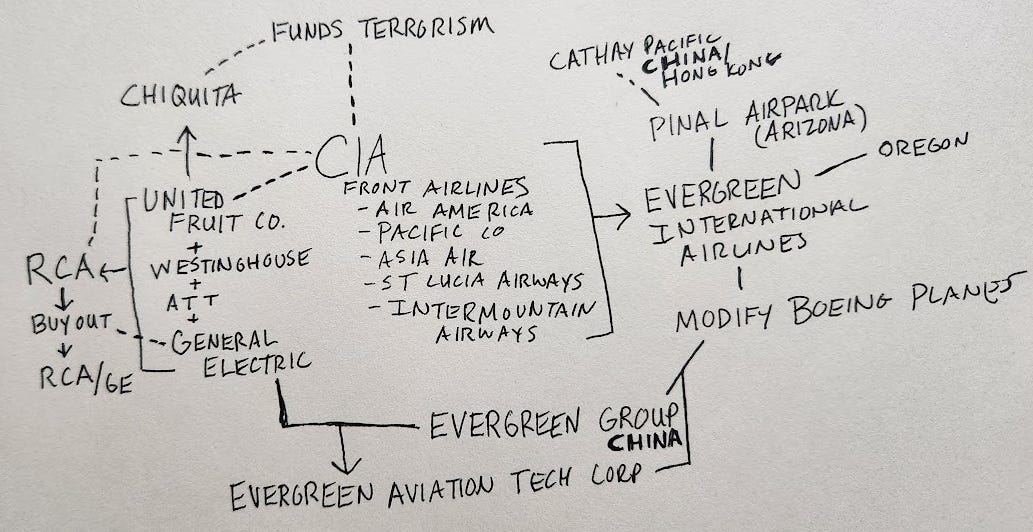 FUNDS TERRORISM
CHIQUITA
CIA
FRONT AIRLINES
- AIR AMERICA
- PACIFIC CO
- ASIA AIR
- ST LUCIA AIRWAYS
- INTERMOUNTAIN
AIRWAYS
UNITED
FRUIT CO.
+
WESTINGHOUSE
+
ATT
+
GENERAL
ELECTRIC
RCA
BUYOUT
RCA/GE
CATHAY PACIFIC
CHINA/
HONG KONG
PINAL AIRPARK
(ARIZONA)
OREGON
EVERGREEN
INTERNATIONAL
AIRLINES
MODIFY BOEING PLANES
EVERGREEN GROUP
CHINA
EVERGREEN AVIATION TECH CORP